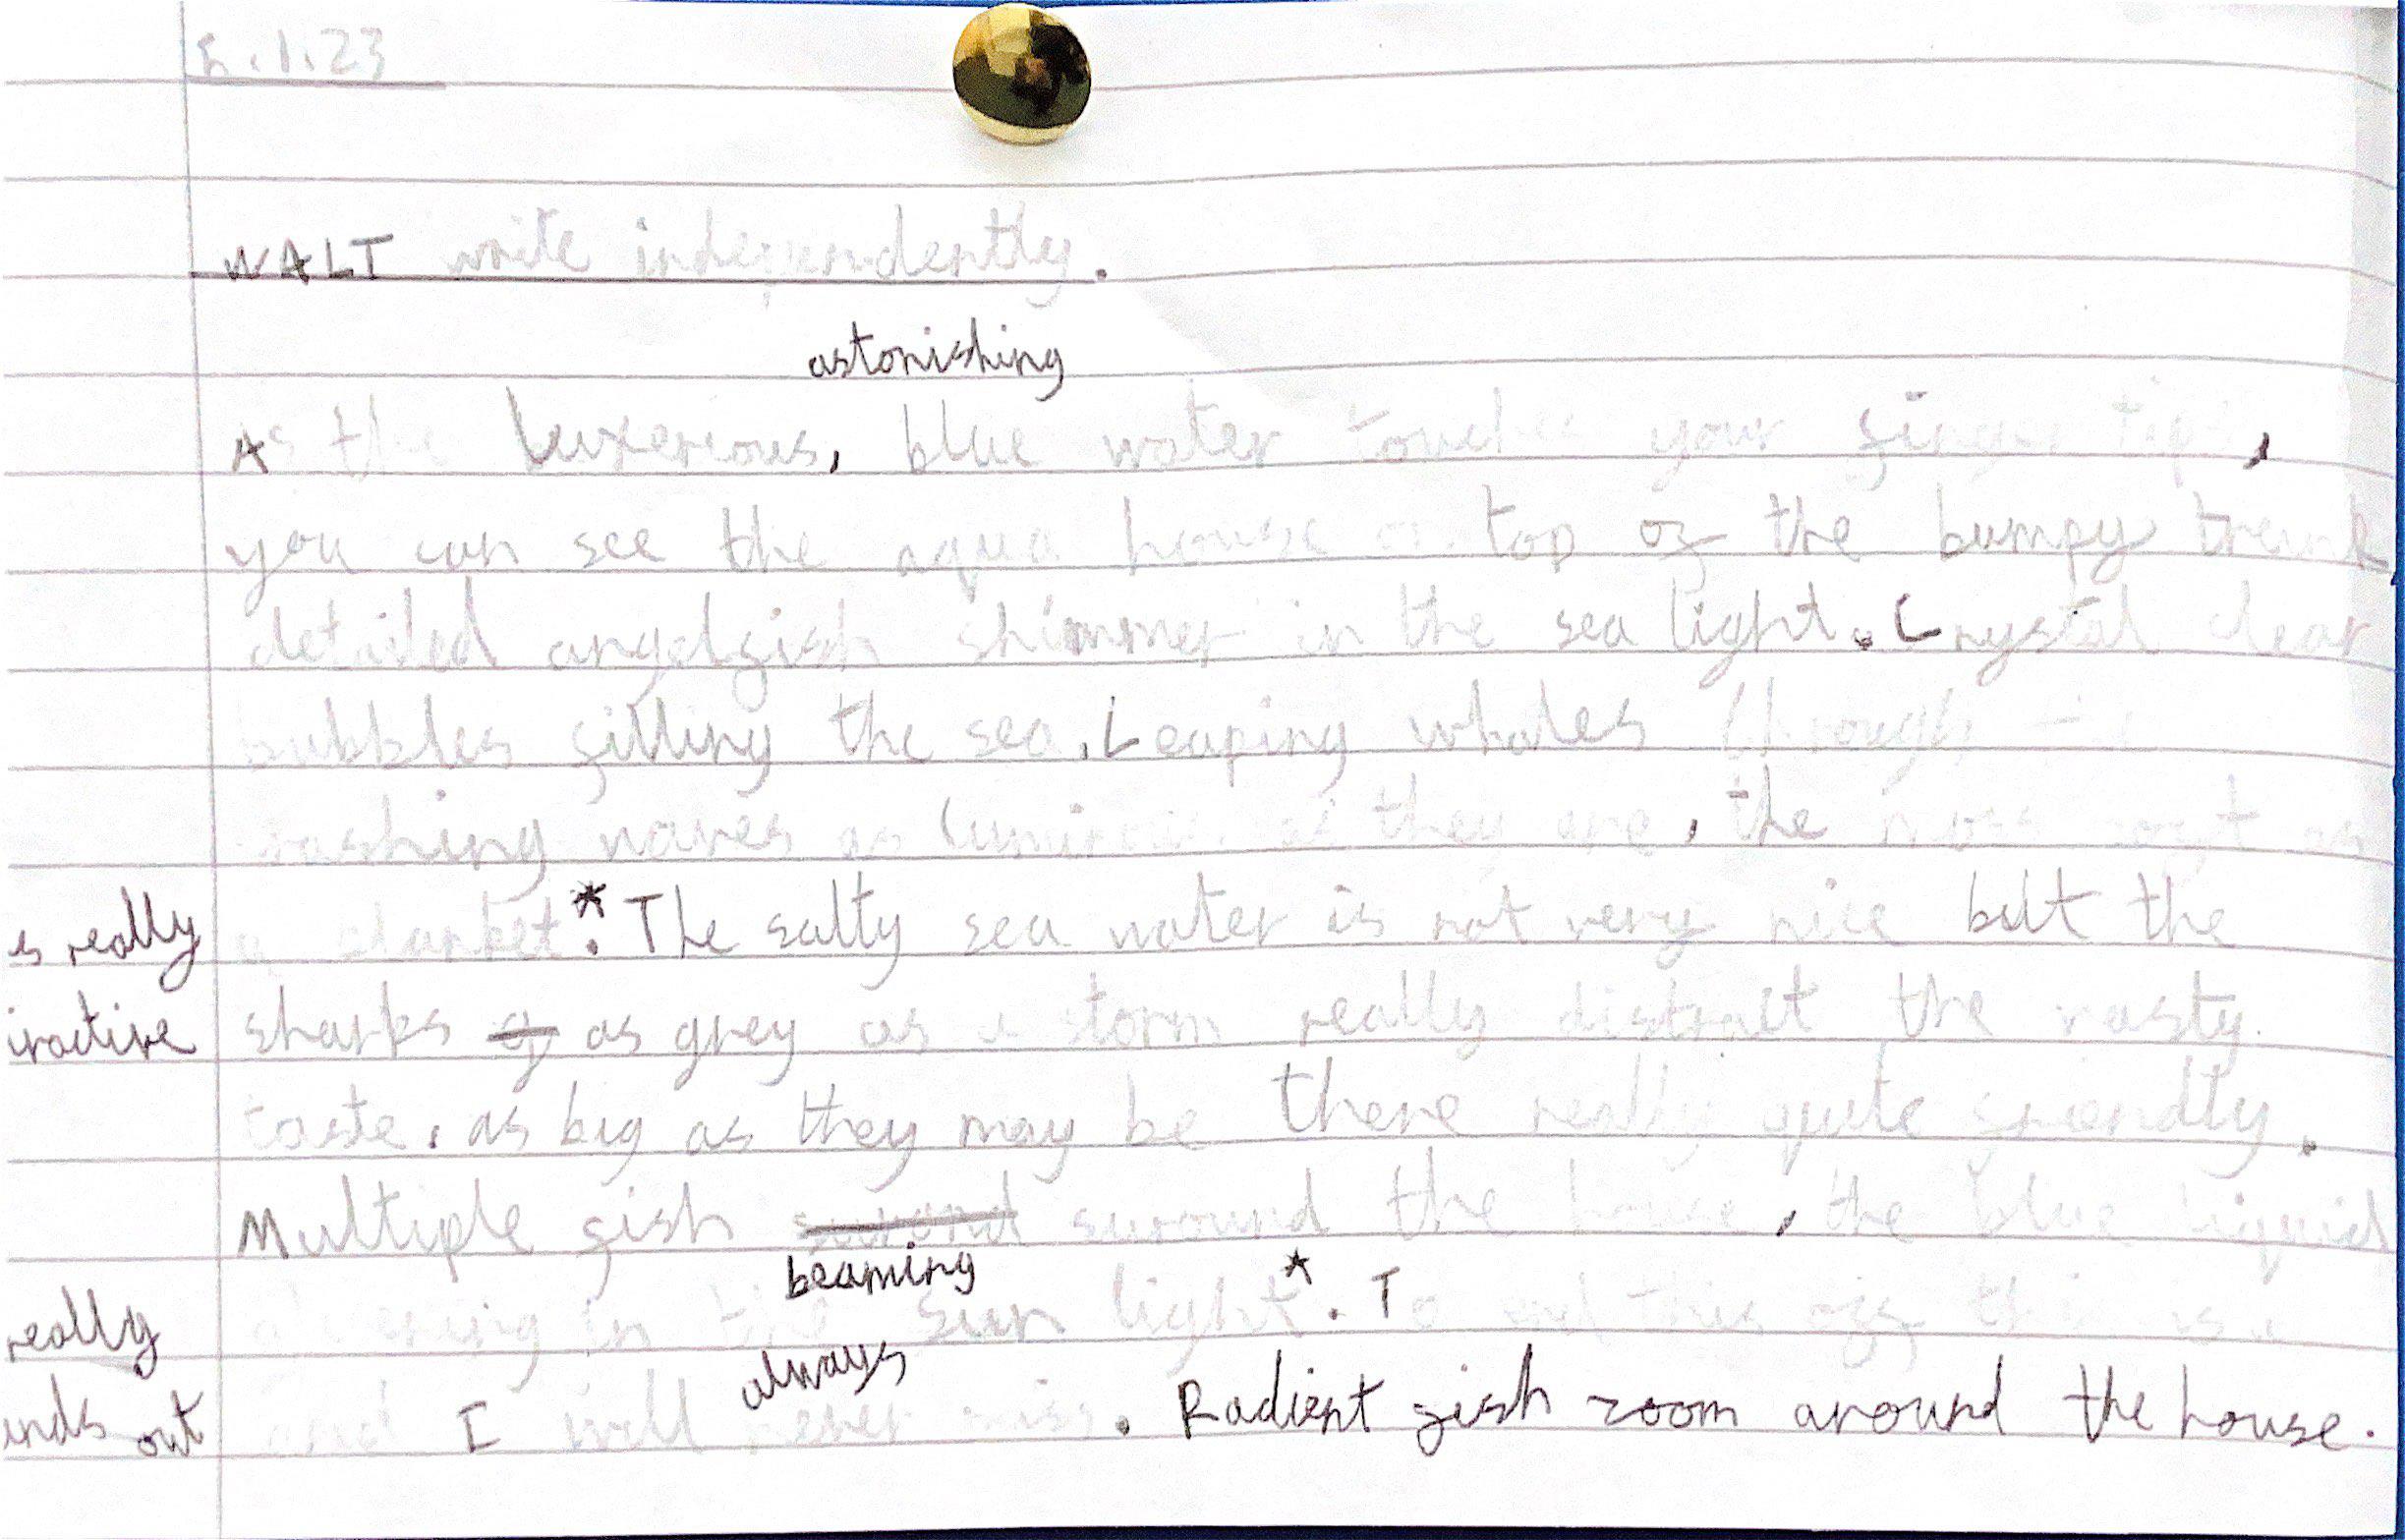 .1.23
WALT write independently.
astonishing
As the luxerious, blue water touches your finger tips,
you can see the aqua house on top of the bumpy trunk
detailed angelfish shimmer in the sea light. Crystal clear
bubbles filling the sea. Leaping whales through the
waves as they are, the as
a blanket.* The salty sea water is not very nice but the
sharks as grey as a storm really distract the nasty
taste. as big as they may be there really quite friendly.
Multiple fish suround the house, the blue liquid
beaming
in the sun light*. To end this off this is a
always
and I will never miss. Radient fish zoom around the house.
is really
really
out